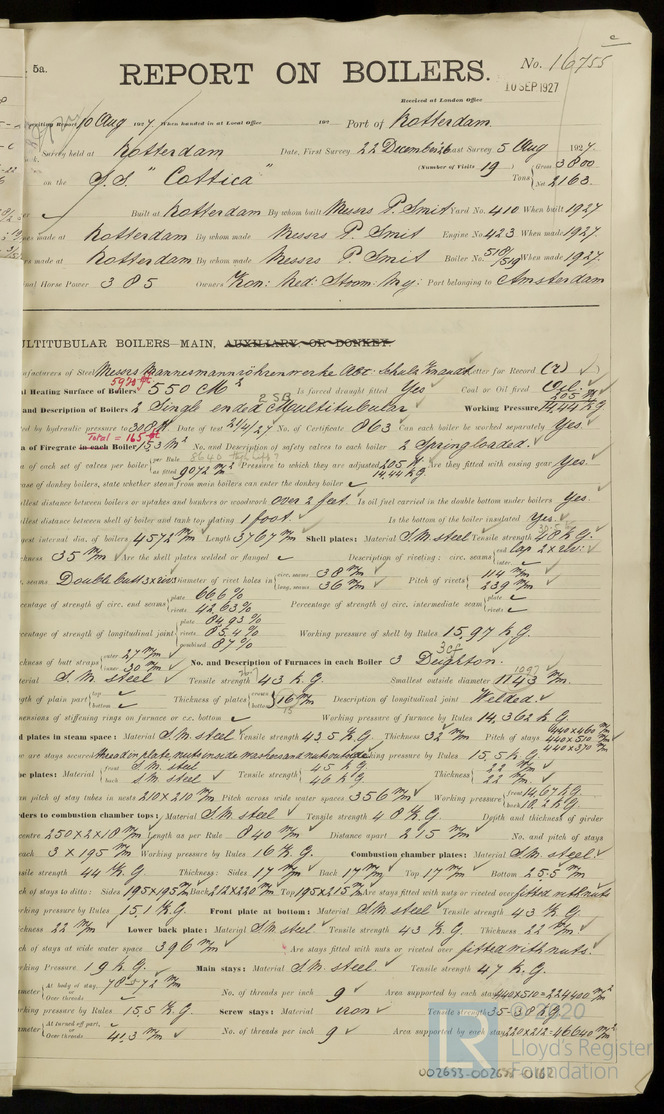 5a.
REPORT ON BOILERS.
No. 16755
Received at London Office
10 SEP 1927
Report 10 Aug 1927. When handed in at Local Office 192 Port of Rotterdam
Survey held at Rotterdam Date, First Survey 22 December 26 Last Survey 5 Aug 1927.
(Number of Visits 19) Gross 3800
Tons Net 2163.
on the S.S. "Cottica"
Built at Rotterdam By whom built Messrs P. Smit Yard No. 410 When built 1927
made at Rotterdam By whom made Messrs P. Smit Engine No. 423 When made 1927.
made at Rotterdam By whom made Messrs P. Smit Boiler No. 518/519 When made 1927.
Horse Power 385 Owners Kon: Ned: Stoom: My: Port belonging to Amsterdam
MULTITUBULAR BOILERS—MAIN, AUXILIARY, OR DONKEY.
of Steel Messrs Mannesmannröhrenwerke Abt: Schulz Knaudt Letter for Record (r)
5920
Heating Surface of Boilers 550 M² Is forced draught fitted Yes Coal or Oil fired Oil.
2 SB
and Description of Boilers 2 Single ended Multitubular Working Pressure 14,44 KG
by hydraulic pressure to 308 Date of test 2/4/27 No. of Certificate 863 Can each boiler be worked separately Yes.
Total = 165
of Firegrate in each Boiler 15,3 M² No. and Description of safety valves to each boiler 2 Spring loaded.
of each set of valves per boiler per Rule as fitted 9072 m/m² Pressure to which they are adjusted 205 14,44 KG Are they fitted with easing gear Yes.
case of donkey boilers, state whether steam from main boilers can enter the donkey boiler
distance between boilers or uptakes and bunkers or woodwork over 2 feet. Is oil fuel carried in the double bottom under boilers Yes.
distance between shell of boiler and tank top plating 1 foot. Is the bottom of the boiler insulated Yes.
internal dia. of boilers 4572 m/m Length 3767 m/m Shell plates: Material S.M. steel Tensile strength 48 K.G.
35 m/m Are the shell plates welded or flanged Description of riveting: circ. seams end lap 2 x riv: inter.
seams Double butt 3 x riv: Diameter of rivet holes in circ. seams 38 m/m long. seams 36 m/m Pitch of rivets 114 m/m 239 m/m
percentage of strength of circ. end seams plate 66.6% rivets 42,63% Percentage of strength of circ. intermediate seam plate rivets
percentage of strength of longitudinal joint plate 84,93% rivets 85.4% combined 87% Working pressure of shell by Rules 15,97 K.G.
thickness of butt straps outer 27 m/m inner 30 m/m No. and Description of Furnaces in each Boiler 3 Deighton.
3cf
S.M. steel Tensile strength 43 K.G. Smallest outside diameter 1143 m/m.
1097
of plain part top bottom Thickness of plates crown bottom 16 m/m Description of longitudinal joint Welded.
15
dimensions of stiffening rings on furnace or c.c. bottom Working pressure of furnace by Rules 14,362 K.G.
plates in steam space: Material S.M. steel Tensile strength 43.5 K.G. Thickness 32 m/m Pitch of stays 440x460 m/m 440x510 m/m 440x370 m/m
are stays secured thread in plate, nuts inside washers and nuts outside. Working pressure by Rules 15,5 K.G.
plates: Material front S.M. steel back S.M. steel Tensile strength 45 K.G. 46 K.G. Thickness 22 m/m 22 m/m
pitch of stay tubes in nests 210 x 210 m/m Pitch across wide water spaces 356 m/m Working pressure front 14,67 K.G. back 18,2 K.G.
Girders to combustion chamber tops: Material S.M. steel Tensile strength 48 K.G. Depth and thickness of girder
centre 250 x 2 x 18 m/m Length as per Rule 840 m/m Distance apart 215 m/m No. and pitch of stays
each 3 x 195 m/m Working pressure by Rules 16 K.G. Combustion chamber plates: Material S.M. steel
Tensile strength 44 K.G. Thickness: Sides 17 m/m Back 17 m/m Top 17 m/m Bottom 25.5 m/m
of stays to ditto: Sides 195x195 m/m Back 212x220 m/m Top 195x215 m/m Are stays fitted with nuts or riveted over fitted with nuts
Working pressure by Rules 15,1 K.G. Front plate at bottom: Material S.M. steel Tensile strength 43 K.G.
22 m/m Lower back plate: Material S.M. steel Tensile strength 43 K.G. Thickness 22 m/m
of stays at wide water space 396 m/m Are stays fitted with nuts or riveted over fitted with nuts.
Working Pressure 19 K.G. Main stays: Material S.M. steel. Tensile strength 47 K.G.
At body of stay, or Over threads 78 x 72 m/m No. of threads per inch 9 Area supported by each stay 440x510=224400 m/m²
Working pressure by Rules 15,5 K.G. Screw stays: Material iron Tensile strength 35-38 KG.
At turned off part, or Over threads 41,3 m/m No. of threads per inch 9 Area supported by each stay 220x212=46640 m/m²
© 2020
LR
Lloyd's Register
Foundation
002693-002698-0162